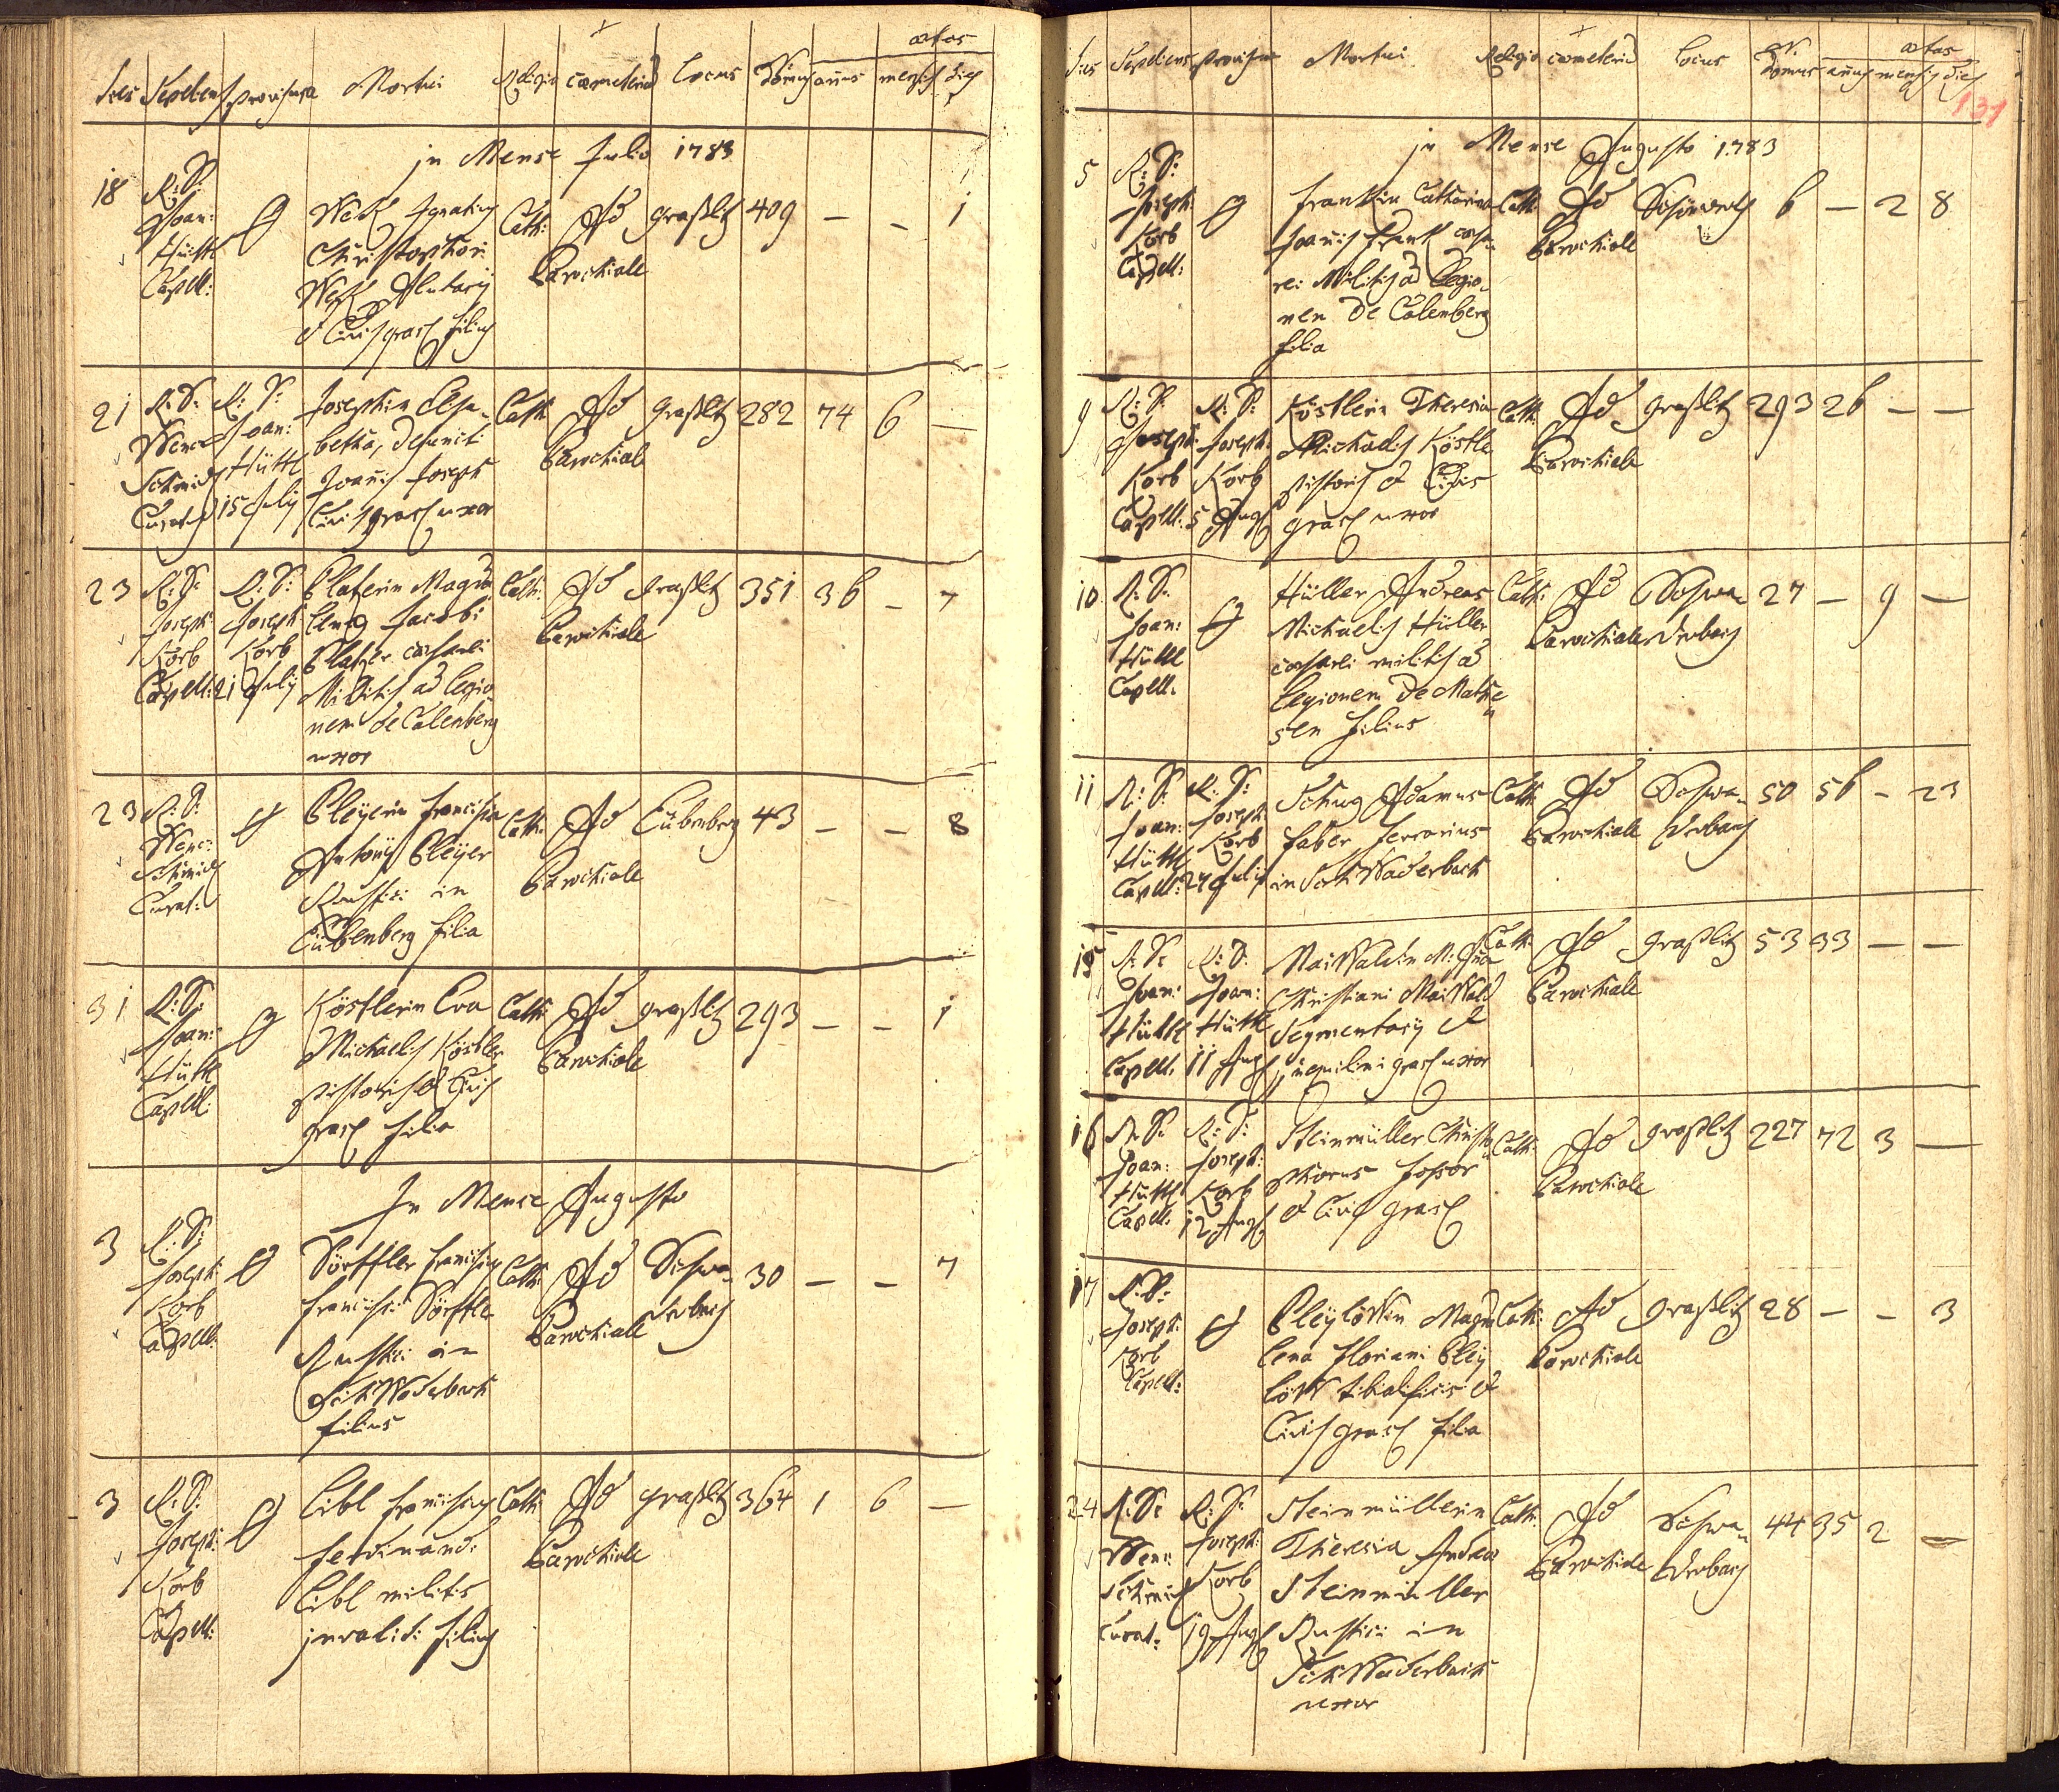 aetas
dies Sepeliens provisura Mortui Religio coemeteriu Locus Nr. domus annus mensis dies
in Mense Julio 1783
18 R: D: Joan: Hüttl Capell:
Wetz Ignatius
Christophori
Wetz Alutarij
et Civis grasl filius
Cath: Ad Parochiale
graßlitz 409 — — 1
21 R: D: Wence Schmidt Curat:
R: D: Joan: Hüttl 15 July
Josephin Elisa-
betha, defuncti
Joanis Joseph
Civis grasl uxor
Cath: Ad Parochiale
graßlitz 282 74 6 —
23 R: D: Joseph Korb Capell:
R: D: Joseph Korb 21 July
Platzerin Magda
lena Jacobi
Platzer caesarei
Militis ad Legio
nem de Calenberg
uxor
Cath: Ad Parochiale
graßlitz 351 36 — 7
23 R: D: Wenc: Schmidt Curat:
Pleÿerin Francisca
Antonij Pleÿer
Rustici in
Eübenberg filia
Cath: Ad Parochiale
Eübenberg 43 — — 8
31 R: D: Joan: Hüttl Capell:
Köstlerin Eva
Michaelis Köstler
pistoris et Civis
grasl filia
Cath: Ad Parochiale
graßlitz 293 — — 1
In Mense Augusto
3 R: D: Joseph: Korb Capell:
Dörffler Franciscus
Francisci Dörffle
Rustici in
SchWaderbach
filius
Cath: Ad Parochiale
Schwa- derbach 30 — — 7
3 R: D: Joseph: Korb Capell:
Libl Franciscus
Ferdinandi
Libl militis
invalidi filius
Cath: Ad Parochiale
graßlitz 364 1 6 —
aetas
dies Sepeliens provisura Mortui Religio coemeteriu Locus Nr. Domus annus mensis dies
131
in Mense Augusto 1783
5 R: D: Joseph: Korb Capell:
Frankin Catharina
Joanis Frank caesa
rei Militis ad Legio-
nem de Calenberg
filia
Cath: Ad Parochiale
6 — 2 8
9 R: D: Joseph: Korb Capell:
R: D: Joseph: Korb 5 Aug
Köstlerin Theresia
Michaelis Köstle
pistoris et Civis
grasl uxor
Cath: Ad Parochiale
graßlitz 293 26 — —
10 R: D: Joan: Hüttl Capell:
Hüller Andreas
Michaelis Hüller
caesarei militis ad
Legionem de Mathe
sen filius
Cath: Ad Parochiale
Schwa- derbach 27 — 9 —
11 R: D: Joan: Hüttl Capell:
R: D: Joseph: Korb 27 July
Schug Adamus
faber ferrarius
in SchWaderbach
Cath: Ad Parochiale
Schwa- derbach 50 56 — 23
15 R: D: Joan: Hüttl Capell:
R: D: Joan: Hüttl 11 Aug
MaiWaldin M: Anna
Christiani MaiWald
Segmentarij et
inquilini grasl uxor
Cath: Ad Parochiale
graßlitz 53 33 — —
16 R: D: Joan: Hüttl Capell:
R: D: Joseph: Korb 12 Aug
Steinmüller Christo
phorus fossor
et Civis grasl
Cath: Ad Parochiale
graßlitz 227 72 3 —
17 R: D: Joseph: Korb Capell:
Pleÿlöwin Magda
lena Floriani Pleÿ
löW tibialificis et
Civis grasl filia
Cath: Ad Parochiale
graßlitz 28 — — 3
24 R: D: Wenc: Schmidt Curat:
R: D: Joseph: Korb 19 Aug
Steinmüllerin
Theresia Andreae
Steinmüller
Rustici in
SchWaderbach
uxor
Cath: Ad Parochiale
Schwa- derbach 44 35 2 —